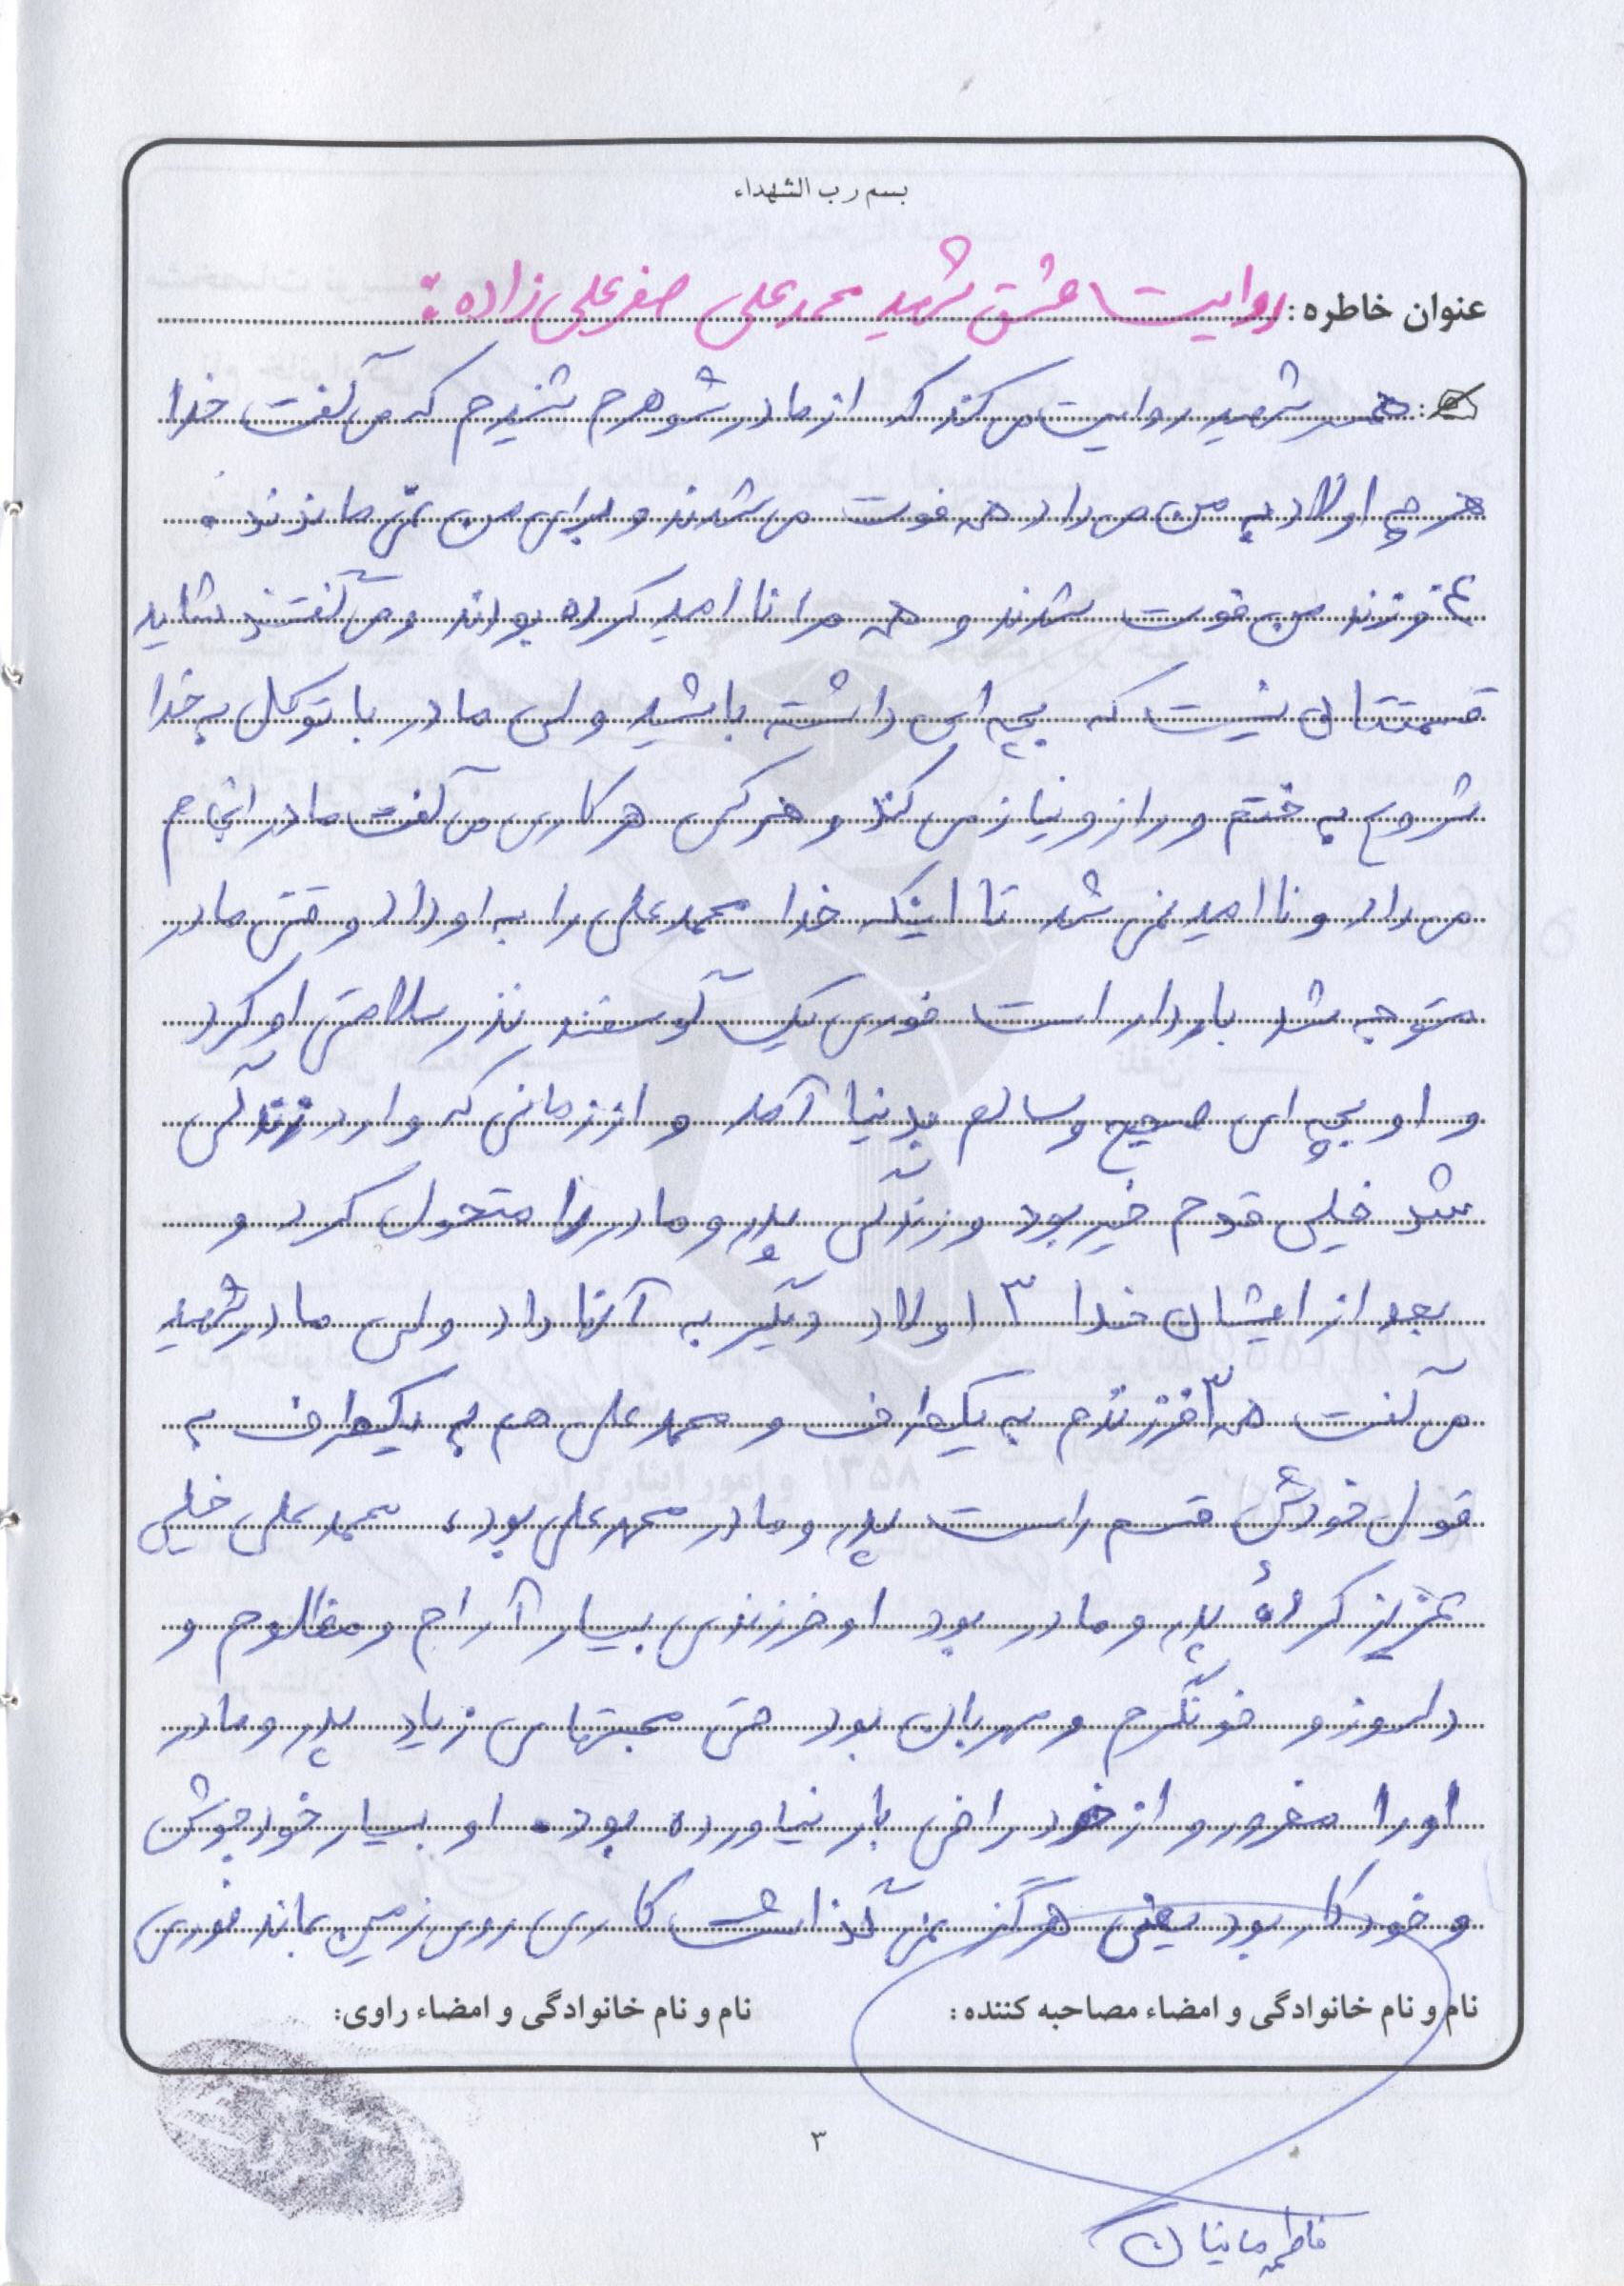 بسم رب الشهداء
عنوان خاطره: روایت عشق شهید محمدعلی صفرعلی زاده:
همسر شهید روایت می کند که از مادر شوهرم شنیدم که می گفت خدا
هر چه اولاد به من می داد همه فوت می شدند و برای من نمی ماندند.
فرزند من فوت شدند و همه مرا ناامید کرده بودند و می گفتند شاید
قسمتتان نیست که بچه ای داشته باشید ولی مادر با توکل به خدا
شروع به ختم و راز و نیاز می کند و هر کس هر کاری می گفت مادر انجام
می داد و ناامید نمی شد تا اینکه خدا محمدعلی را به او داد وقتی مادر
متوجه شد باردار است فوری یک گوسفند نذر سلامتی او کرد
و او بچه ای صحیح و سالم بدنیا آمد و از زمانی که وارد زندگی
شد خیلی قدم خیر بود و زندگی پدر و مادر را متحول کرد و
بعد از ایشان خدا ۳ اولاد دیگر به آنها داد ولی مادر شهید
می گفت همه ۳ فرزندم به یکطرف و محمدعلی هم به یکطرف به
قول خودش قسم راست پدر و مادر محمدعلی بود، محمدعلی خیلی
عزیز کردهٔ پدر و مادر بود او فرزندی بسیار آرام و مظلوم و
دلسوز و خونگرم و مهربان بود حتی محبتهای زیاد پدر و مادر
او را مغرور و از خود راضی بار نیاورده بود. او بسیار خودجوش
و خودکار بود یعنی هرگز نمی گذاشت کاری روی زمین بماند فوری
نام و نام خانوادگی و امضاء مصاحبه کننده: نام و نام خانوادگی و امضاء راوی:
۳
فاطمه مانیان